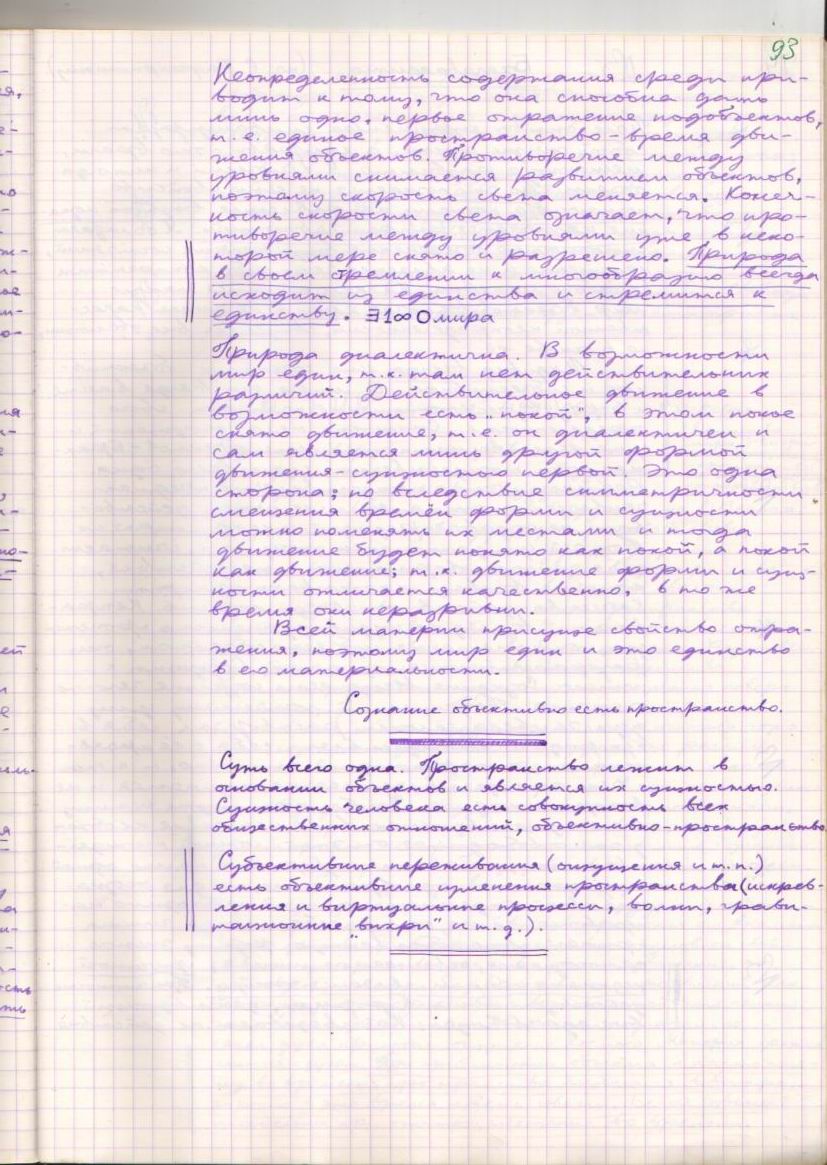 93
Неопределенность содержания среды при-
водит к тому, что она способна дать
лишь одно, первое отражение подобъектов,
т. е. единое пространство-время дви-
жения объектов. Противоречие между
уровнями снимается развитием объектов,
поэтому скорость света меняется. Конеч-
ность скорости света означает, что про-
тиворечие между уровнями уже в неко-
торой мере снято и разрешено. Природа
в своем стремлении к многообразию всегда
исходит из единства и стремится к
единству. ∃1∞0 мира
Природа диалектична. В возможности
мир един, т.к. там нет действительных
различий. Действительное движение в
возможности есть „покой", в этом покое
снято движение, т.е. он диалектичен и
сам является лишь другой формой
движения-сущностью первой. Это одна
сторона; но вследствие симметричности
смещения времён формы и сущности
можно поменять их местами и тогда
движение будет понято как покой, а покой
как движение; т.к. движение формы и сущ-
ности отличается качественно, в то же
время они неразрывны.
Всей материи присуще свойство отра-
жения, поэтому мир един и это единство
в его материальности.
Сознание объективно есть пространство.
Суть всего одна. Пространство лежит в
основании объектов и является их сущностью.
Сущность человека есть совокупность всех
общественных отношений, объективно-пространство
Субъективные переживания (ощущения и т.п.)
есть объективные изменения пространства (искрив-
ления и виртуальные процессы, волны, грави-
тационные „вихри" и т.д.).